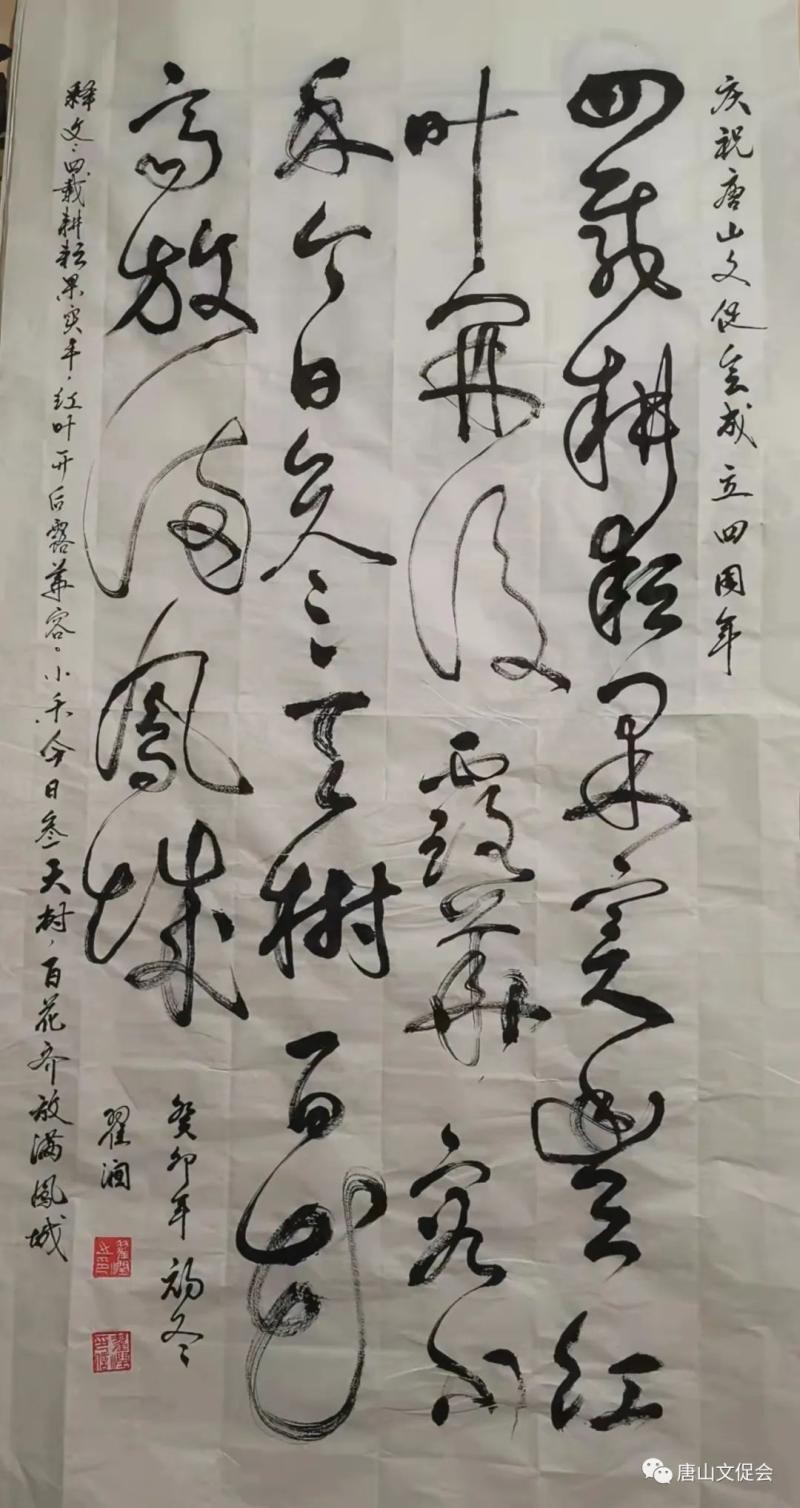 庆祝唐山文促会成立四周年
四载耕耘果实豊红
叶開後露華容小
禾今日叁天树百花
齐放满鳳城
癸卯年初冬
翟润
释文：四载耕耘果实丰，红叶开后露华容。小禾今日叁天树，百花齐放满凤城
唐山文促会